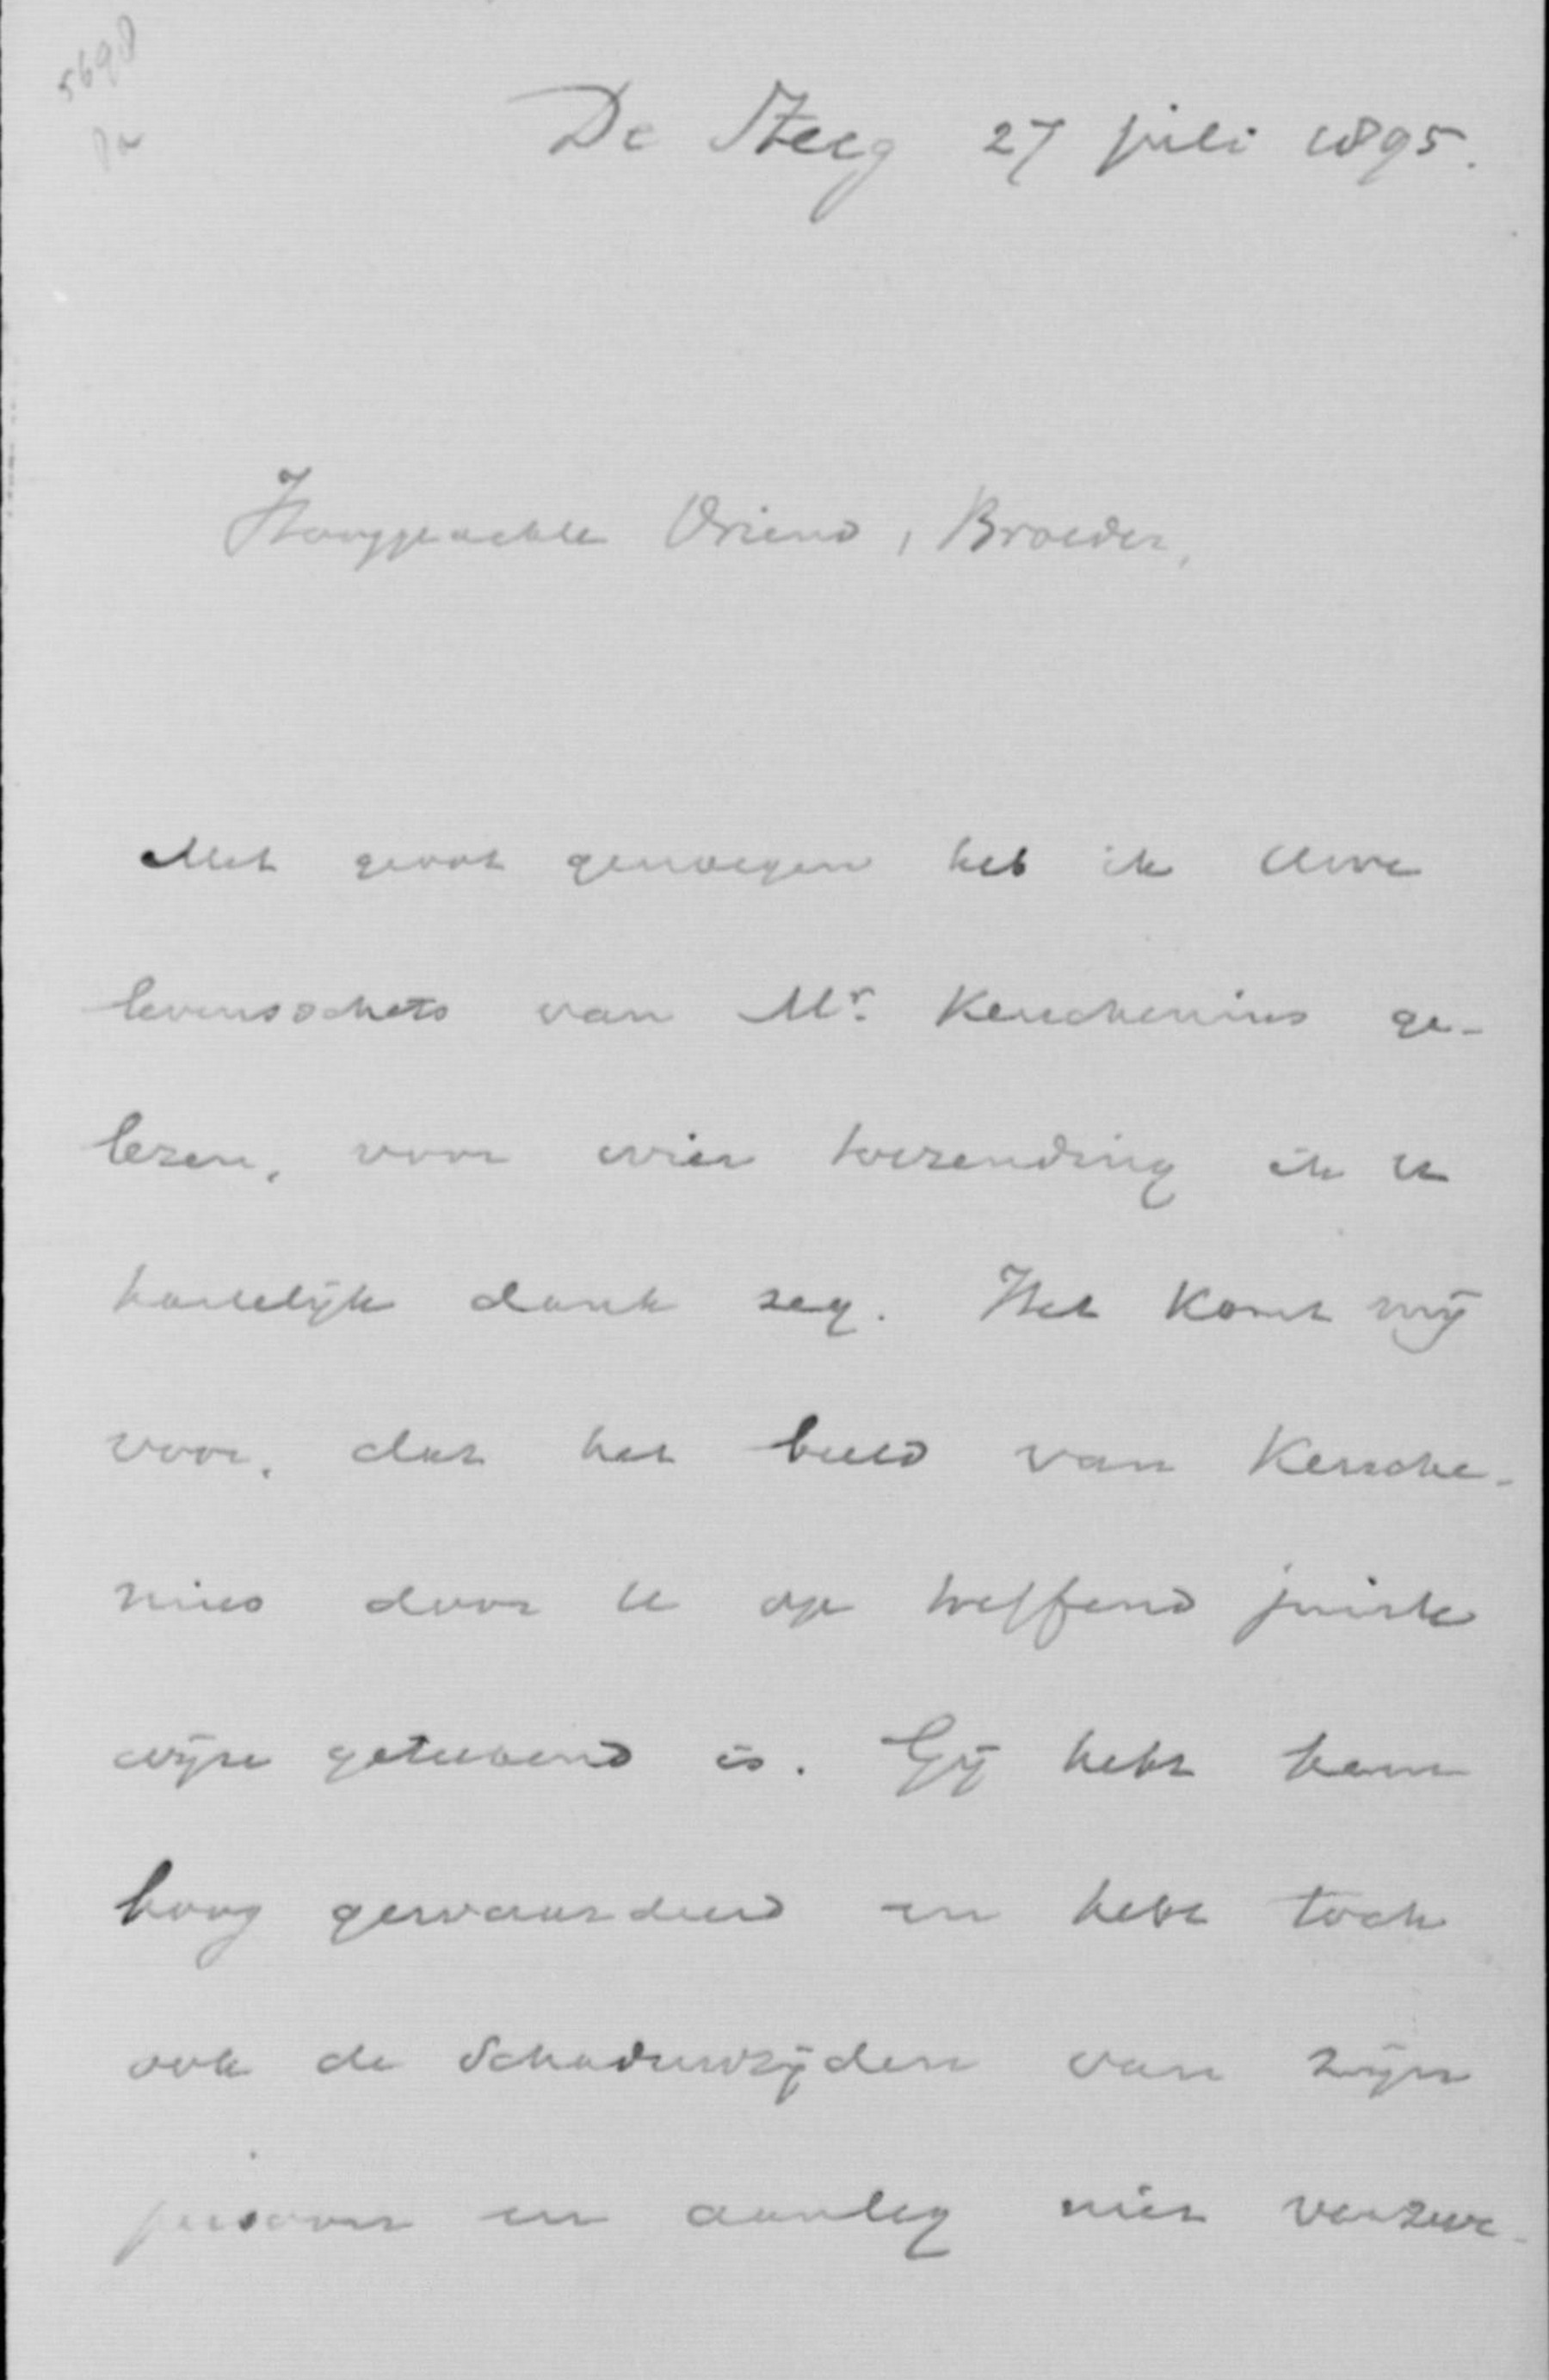 5690
De Steeg 27 juli 1895.
Hooggeachte Vriend, Broeder,
Met groot genoegen heb ik Uwe
levensschets van Mr. Keuchenius ge-
lezen, voor wier toezending ik U
hartelijk dank zeg. Het komt mij
voor, dat het beeld van Keuche-
nius door U op treffend juiste
wijze geteekend is. Gij hebt hem
hoog gewaardeerd en hebt toch
ook de schaduwzijden van zijn
persoon en aanleg niet verzwe-